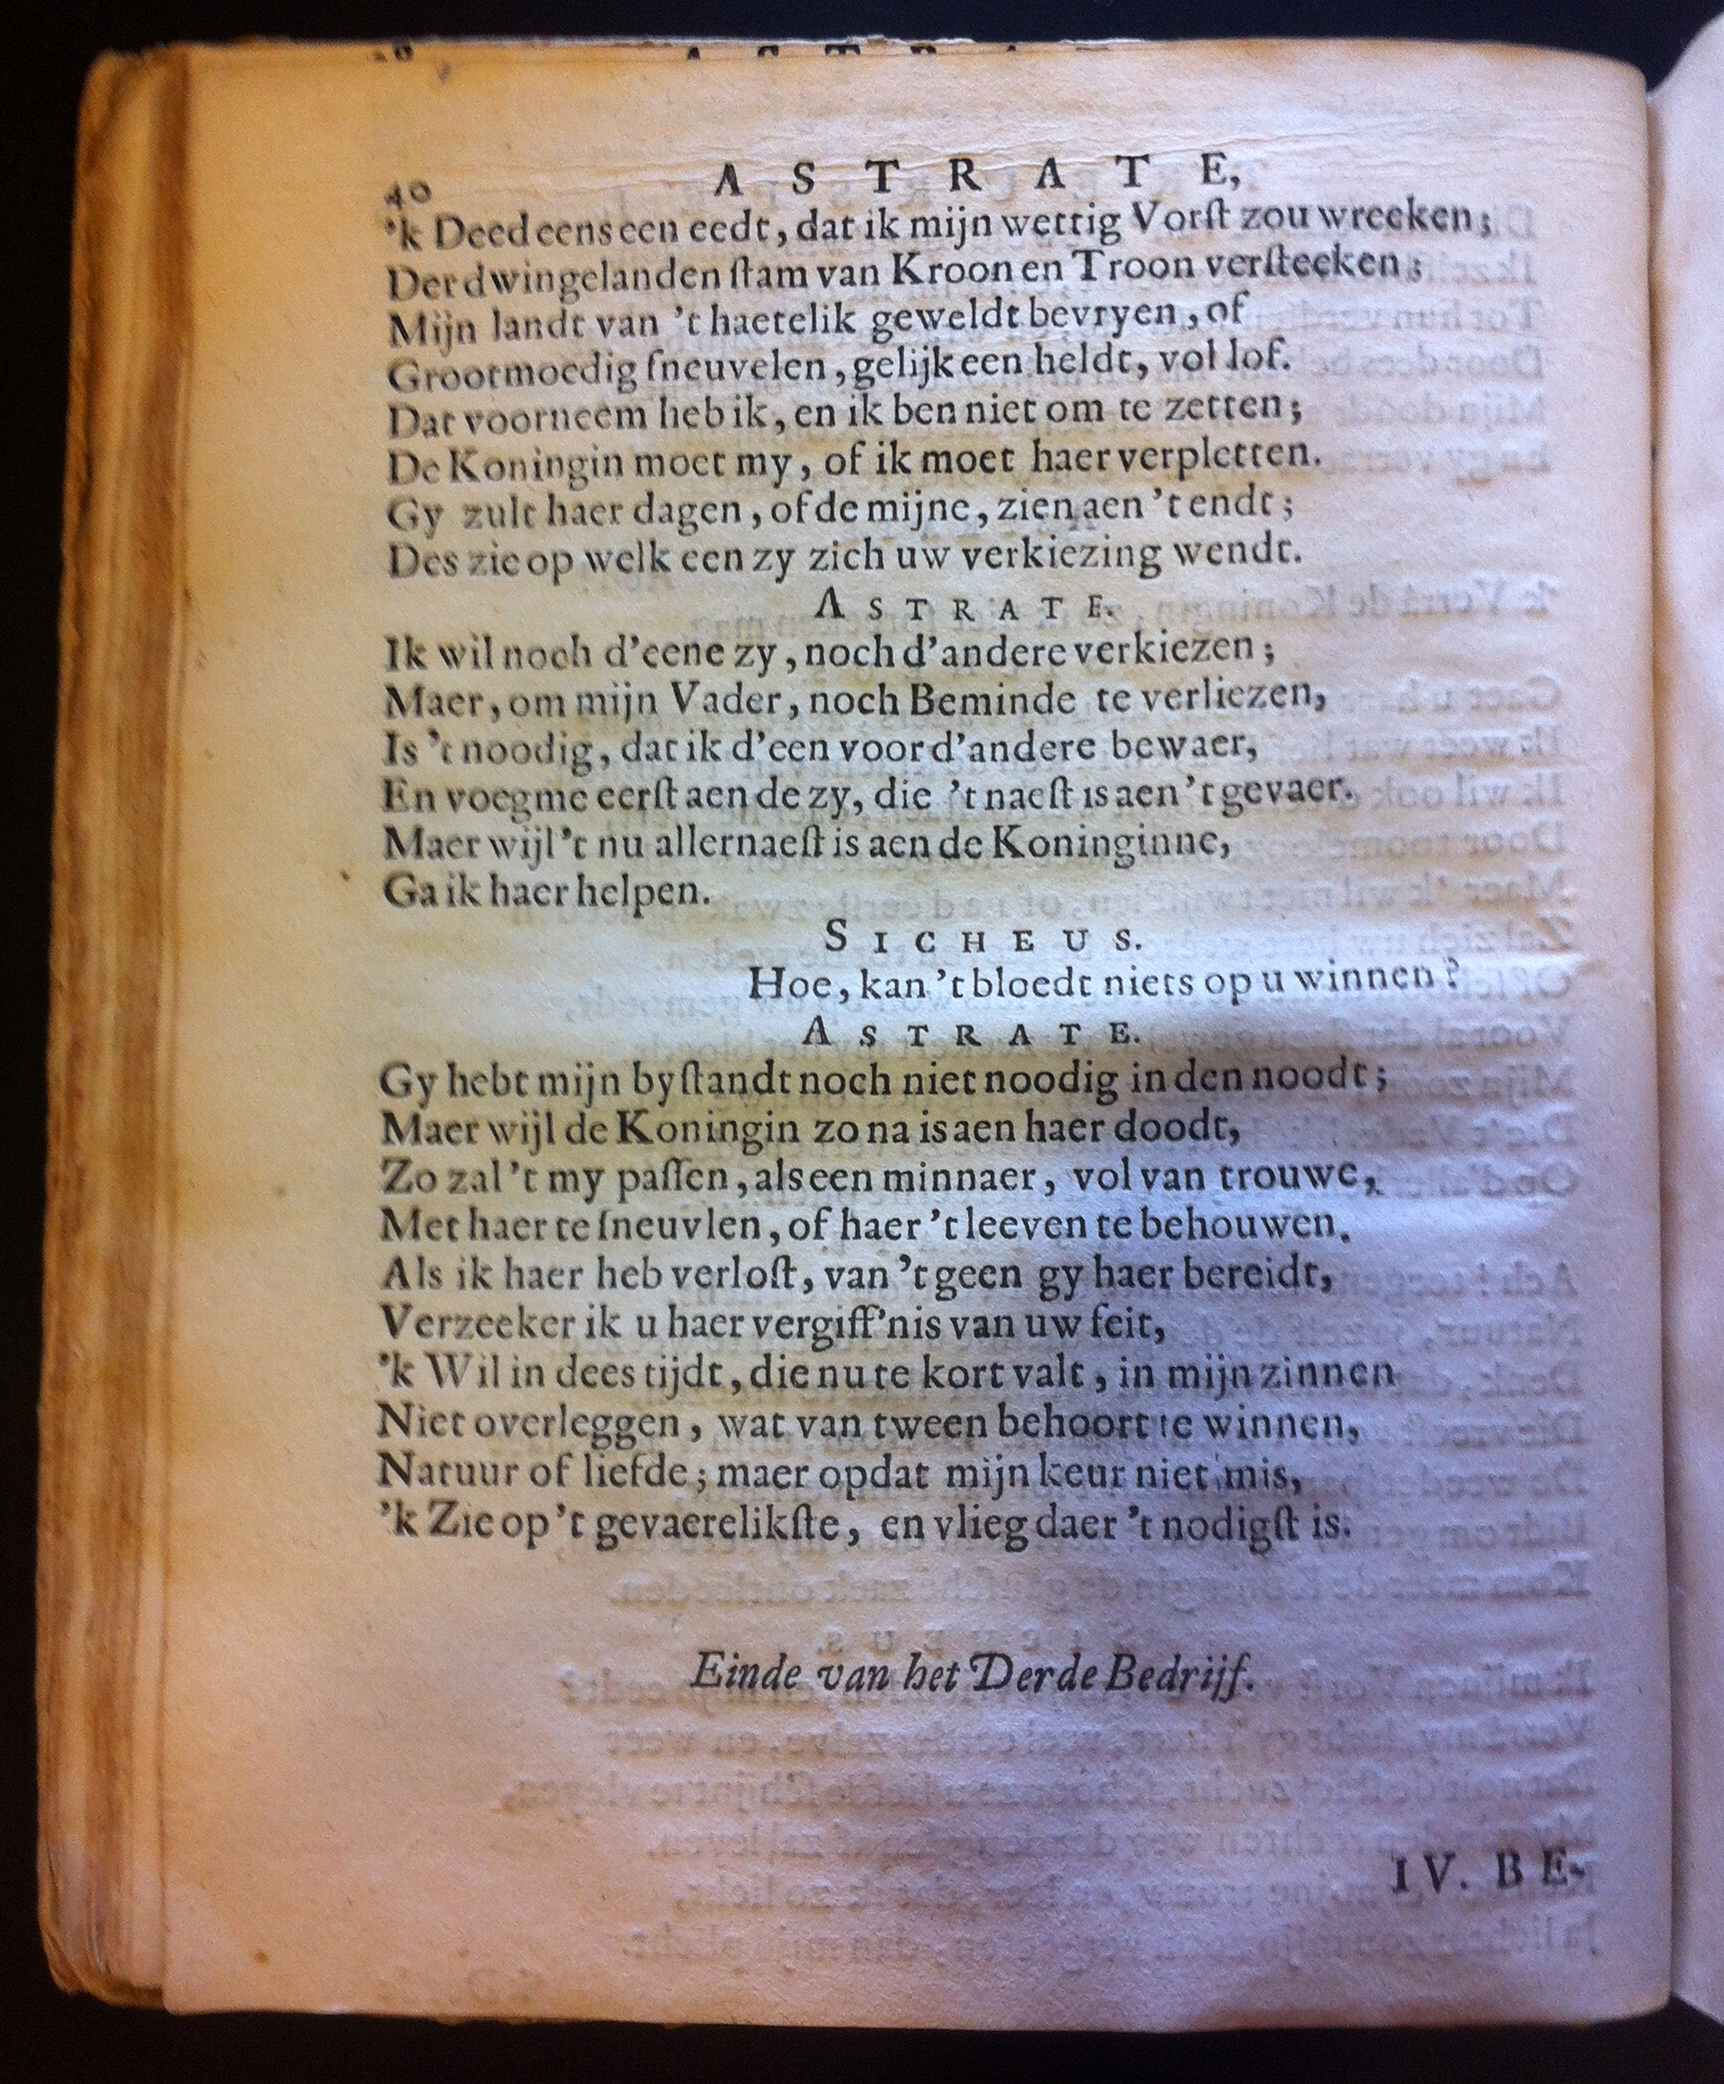 40 ASTRATE,
'k Deed eens een eedt, dat ik mijn wettig Vorſt zou wreeken;
Der dwingelanden ſtam van Kroon en Troon verſteeken;
Mijn landt van 't haetelik geweldt bevryen, of
Grootmoedig ſneuvelen, gelijk een heldt, vol lof.
Dat voorneem heb ik, en ik ben niet om te zetten;
De Koningin moet my, of ik moet haer verpletten.
Gy zult haer dagen, of de mijne, zien aen 't endt;
Des zie op welk een zy zich uw verkiezing wendt.
ASTRATE.
Ik wil noch d'eene zy, noch d'andere verkiezen;
Maer, om mijn Vader, noch Beminde te verliezen,
Is 't noodig, dat ik d'een voor d'andere bewaer,
En voeg me eerſt aen de zy, die 't naeſt is aen 't gevaer.
Maer wijl 't nu allernaeſt is aen de Koninginne,
Ga ik haer helpen.
SICHEUS.
Hoe, kan 't bloedt niets op u winnen?
ASTRATE.
Gy hebt mijn byſtandt noch niet noodig in den noodt;
Maer wijl de Koningin zo na is aen haer doodt,
Zo zal 't my paſſen, als een minnaer, vol van trouwe,
Met haer te ſneuvlen, of haer 't leeven te behouwen.
Als ik haer heb verloſt, van 't geen gy haer bereidt,
Verzeeker ik u haer vergiff'nis van uw feit,
'k Wil in dees tijdt, die nu te kort valt, in mijn zinnen
Niet overleggen, wat van tween behoort te winnen,
Natuur of liefde; maer opdat mijn keur niet mis,
'k Zie op 't gevaerelikſte, en vlieg daer 't nodigſt is.
Einde van het Derde Bedrijf.
IV. BE-